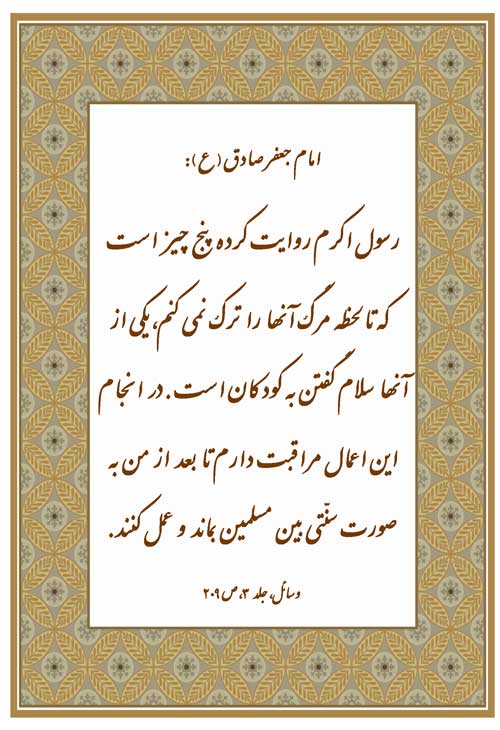 امام جعفر صادق (ع):
رسول اکرم روایت کرده پنج چیز است
که تا لحظه مرگ آنها را ترک نمی کنم، یکی از
آنها سلام گفتن به کودکان است. در انجام
این اعمال مراقبت دارم تا بعد از من به
صورت سنّتی بین مسلمین بماند و عمل کنند.
وسائل، جلد ۳، ص ۲۰۹